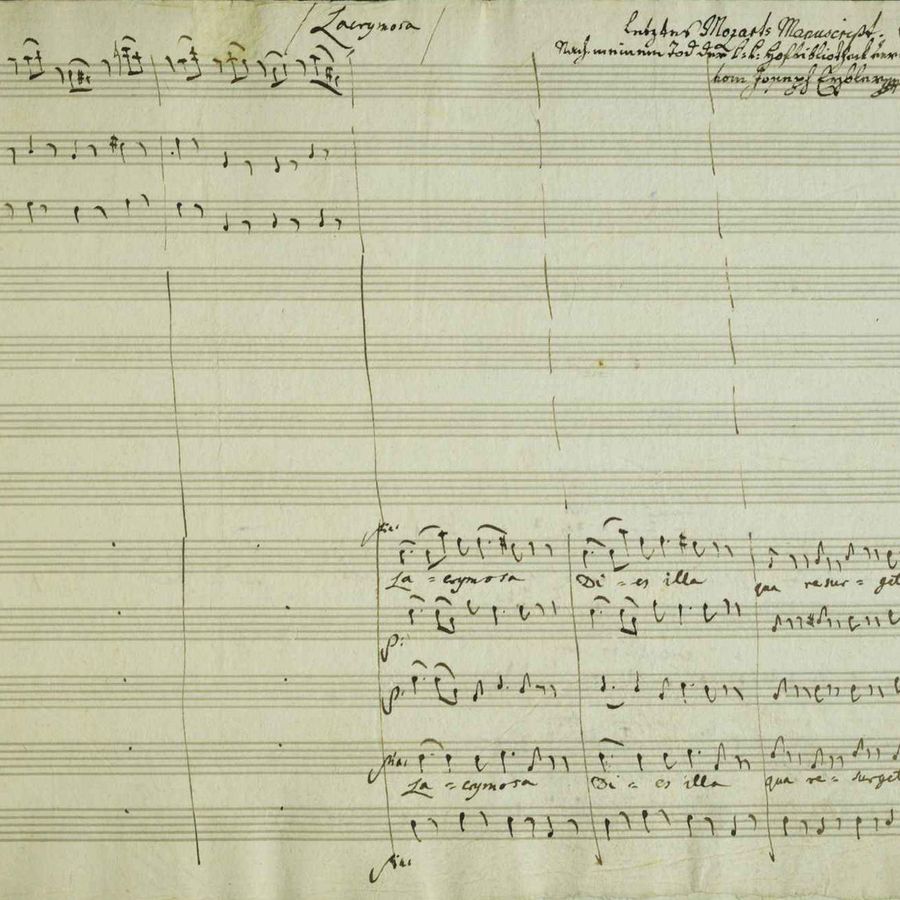 Lacrymosa
letztes Mozarts Manuscript.
Nach meinem Tod der k: k: Hofbibliothek ver
vom Joseph Eybler
pia:
La - crymosa Di - es illa qua resur - get
p:
p:
pia: La - crymosa Di - es illa qua re - surget
pia: